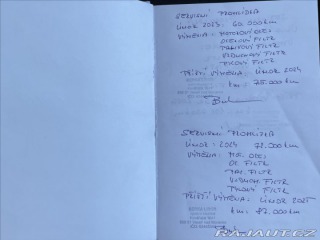 SERVISNÍ PROHLÍDKA
ÚNOR 2023 60.000 km
VÝMĚNA: MOTOROVÝ OLEJ
OLEJOVÝ FILTR
PALIVOVÝ FILTR
VZDUCHOVÝ FILTR
PYLOVÝ FILTR
PŘÍŠTÍ VÝMĚNA: ÚNOR 2024
km: 75.000 km
SERVISNÍ PROHLÍDKA
ÚNOR: 2024 72.000 km
VÝMĚNA: MOT. OLEJ
OL FILTR
PAL FILTR
VZDUCH. FILTR
PYLOVÝ FILTR
PŘÍŠTÍ VÝMĚNA: ÚNOR 2025
km: 87.000 km
RAJAUT.CZ